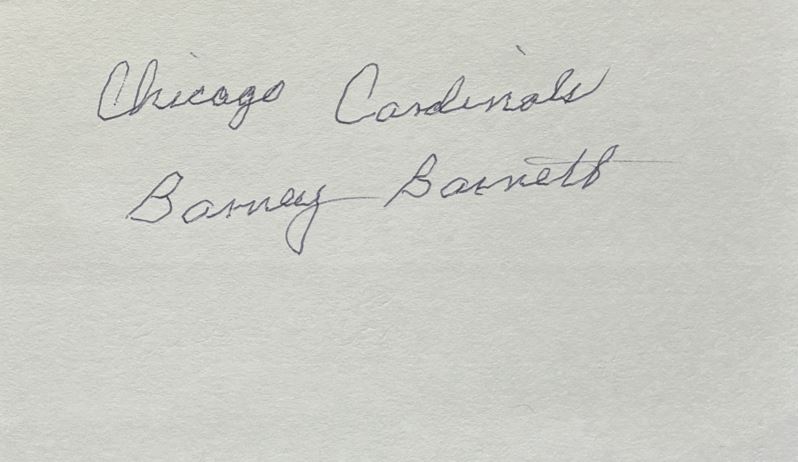 Chicago Cardinals
Barney Barnett